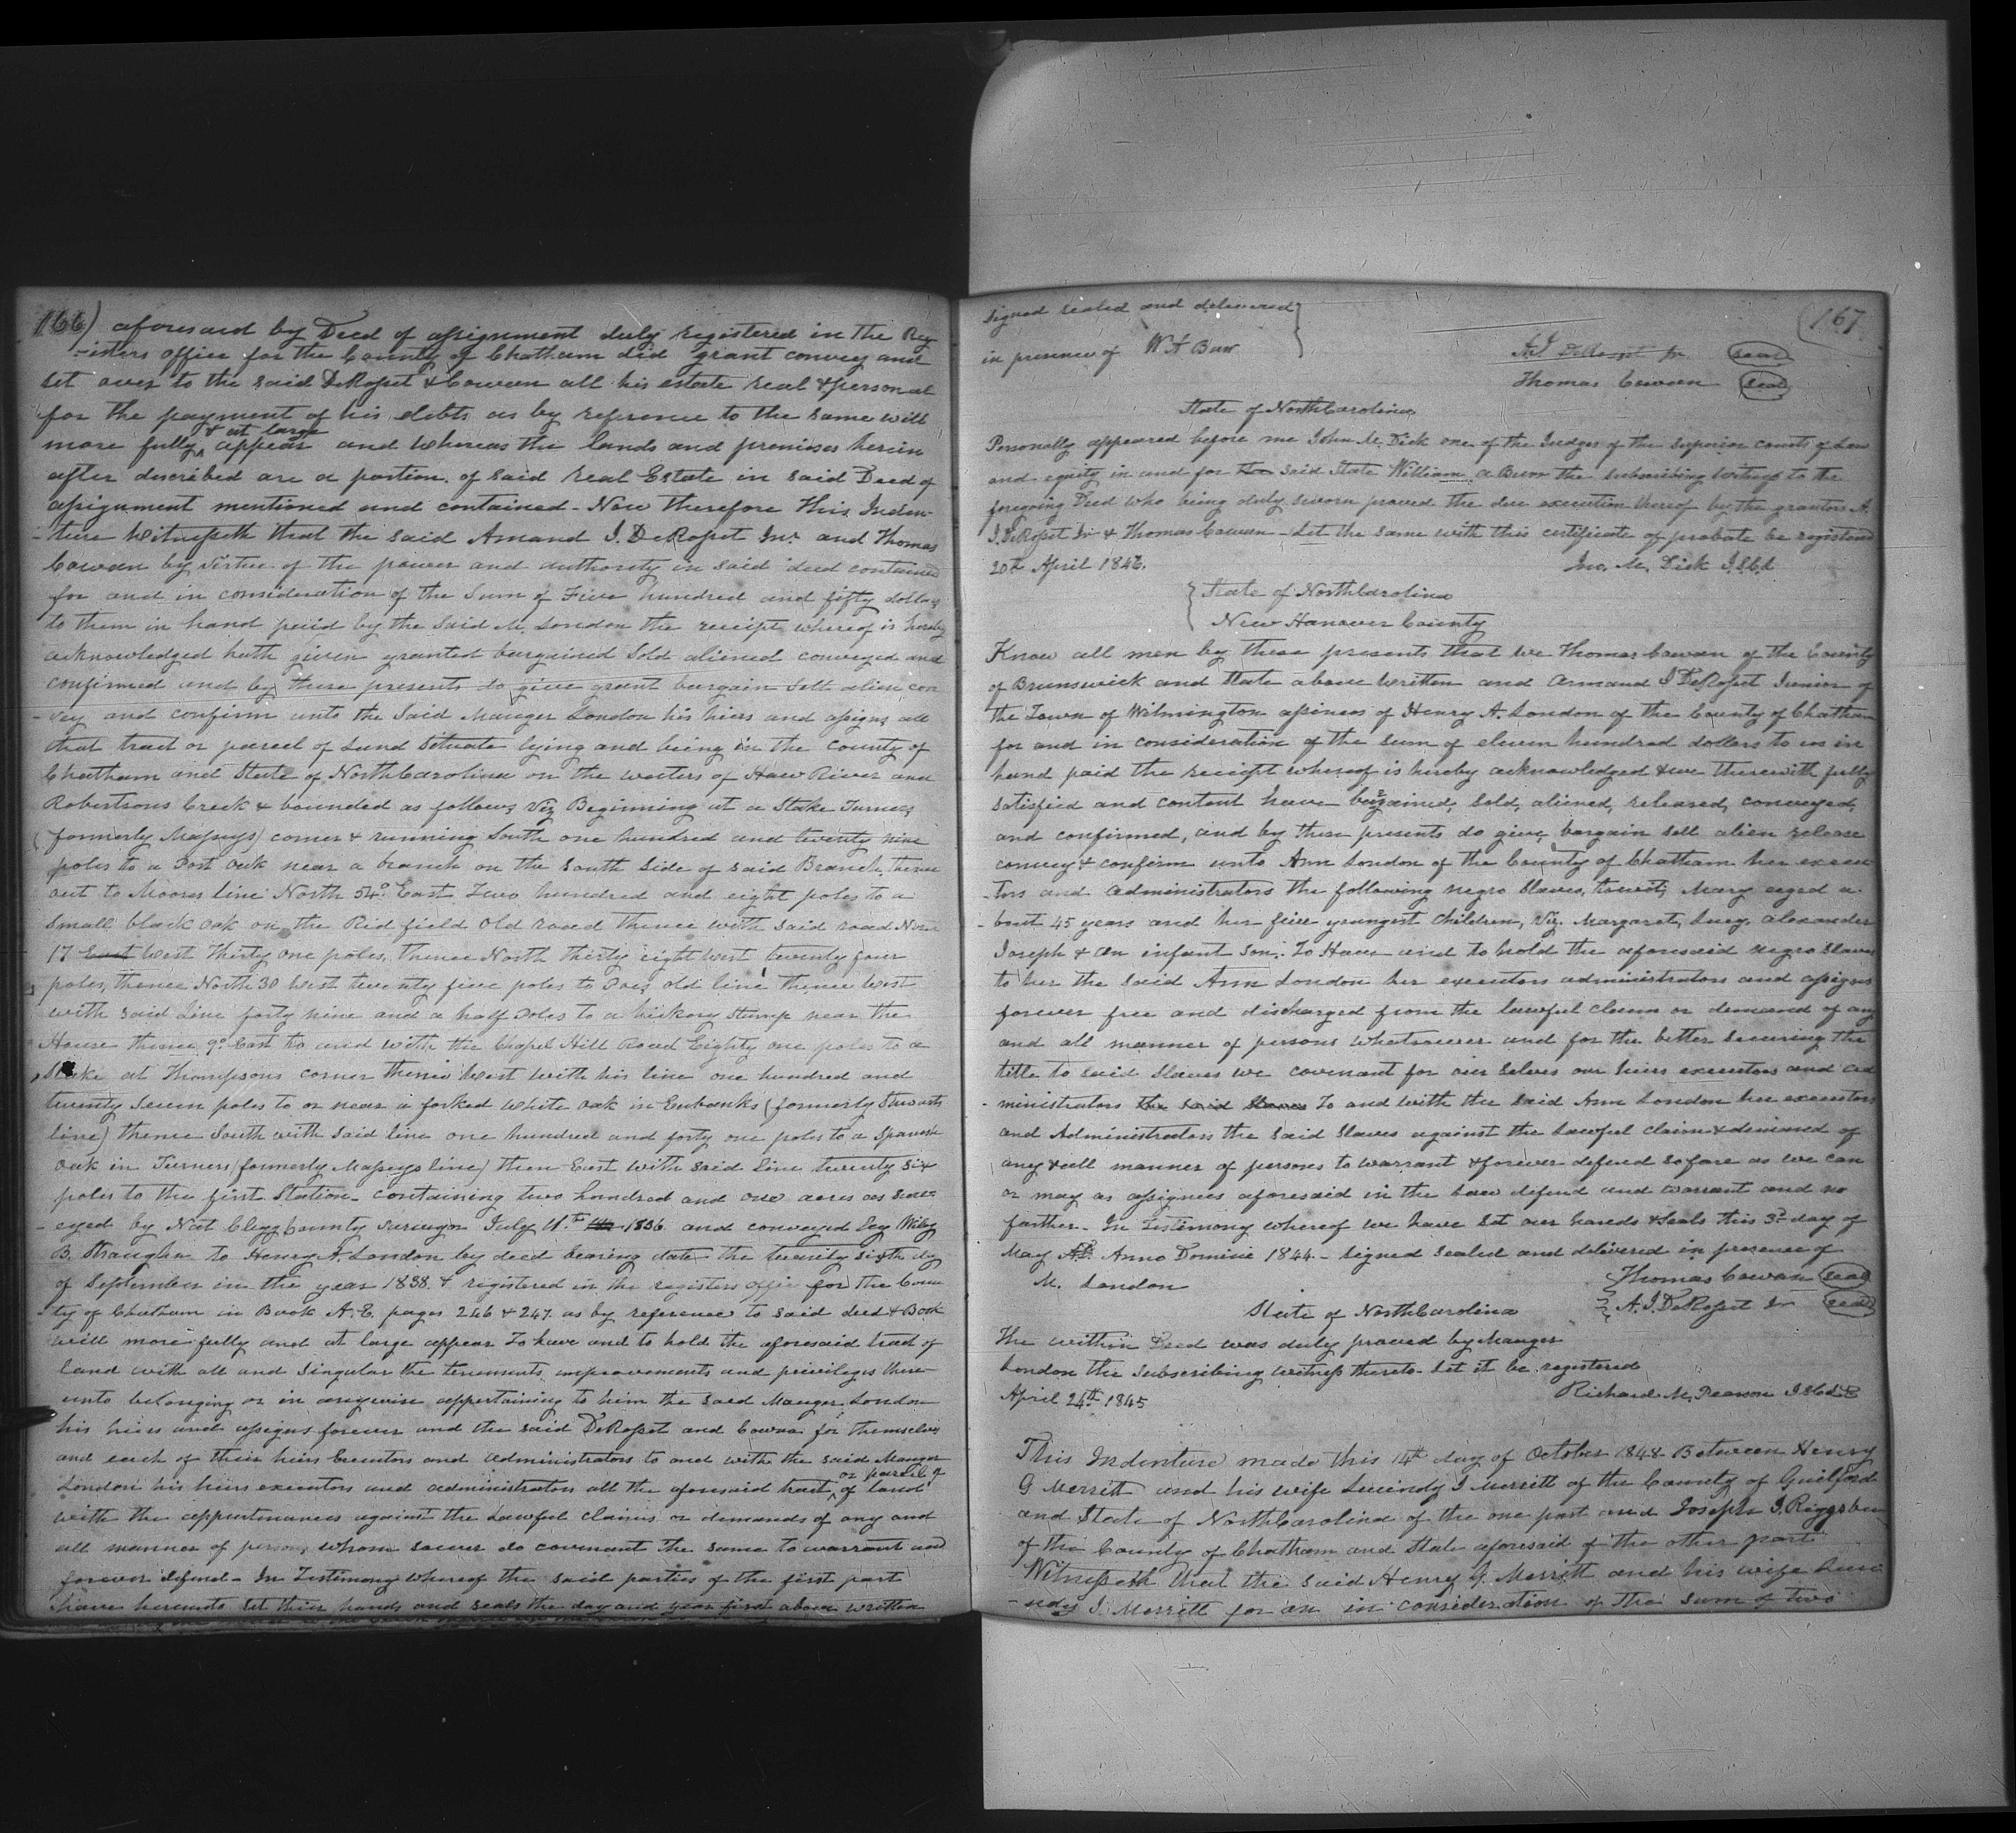 166) aforesaid by Deed of assignment duly registered in the Reg
-isters office for the County of Chatham did grant convey and
set over to the said DeRosset & Cowan all his estate real & personal
for the payment of his debts as by reference to the same will
more fully & at large appear and whereas the lands and premises herein
after described are a portion of said real Estate in said Deed of
assignment mentioned and contained - Now therefore This Inden-
-ture Witnesseth that the said Amand J. DeRosset Jnr and Thomas
Cowan by virtue of the power and authority in said deed contained
for and in consideration of the Sum of Five hundred and fifty dollars
to them in hand paid by the said M. London the receipt whereof is hereby
acknowledged hath given granted bargained Sold aliened conveyed and
confirmed and by these presents do give grant bargain Sell alien con
-vey and confirm unto the Said Mauger London his heirs and assigns all
that tract or parcel of Land Situate lying and being in the County of
Chatham and State of NorthCarolina on the waters of Haw River and
Robertsons Creek & bounded as follows, Viz Beginning at a Stake Turners
(formerly Masseys) corner & running South one hundred and twenty nine
poles to a Post oak near a branch on the South Side of said Branch, thence
out to Moores line North 54° East Two hundred and eight poles to a
small black oak on the Rid field Old road thence with said road North
17 East West Thirty one poles, thence North thirty eight West twenty four
poles, thence North 30 West twenty five poles to Does old line thence West
with said Line forty nine and a half Poles to a hickory Stump near the
House thence 9° East to and with the Chapel Hill Road Eighty one poles to a
Stake at Thompsons corner thence West with his line one hundred and
twenty Seven poles to or near a forked white oak in Eubanks (formerly Stewarts
line) thence South with Said line one hundred and forty one poles to a Spanish
oak in Turners (formerly Masseys line) then East with said line twenty six
poles to the first Station - containing two hundred and one acres as surv-
-eyed by Nat Clegg County surveyor July 11th 1836 and conveyed by Wiley
B. Straughn to Henry A. London by deed bearing date the twenty sixth day
of September in the year 1838. & registered in the registers office for the Coun
-ty of Chatham in Book A.E. pages 246 & 247. as by reference to said deed & Book
will more fully and at large appear To have and to hold the aforesaid tract of
Land with all and Singular the tenements improvements and privileges there
unto belonging or in anywise appertaining to him the said Mauger London
his heirs and assigns forever and the said DeRosset and Cowan for themselves
and each of their heirs Executors and administrators to and with the said Mauger
London his heirs executors and administrators all the aforesaid tract or parcel of of land
with the appurtenances against the Lawful claims or demands of any and
all manner of persons whom soever do covenant the same to warrant and
forever defend - In Testimony whereof the said parties of the first part
have hereunto Set their hands and seals the day and year first above written
167
signed sealed and delivered
in presence of W A Burr
A.J DeRosset Jr seal
Thomas Cowan seal
State of NorthCarolina
Personally appeared before me John M. Dick one of the Judges of the Superior courts of Law
and equity in and for the said State William A Burr the subscribing witness to the
foregoing Deed who being duly sworn proved the due execution thereof by the grantors A.
J. DeRosset Jr & Thomas Cowan - Let the same with this certificate of probate be registered
20th April 1846. Jno. M. Dick J.S.C.L
State of NorthCarolina
New Hanover County
Know all men by these presents that we Thomas Cowan of the County
of Brunswick and State above written and Armand J DeRosset Junior of
the Town of Wilmington assinees of Henry A. London of the County of Chatham
for and in consideration of the sum of eleven hundred dollars to us in
hand paid the receipt whereof is hereby acknowledged & we therewith fully
satisfied and content have bargained, Sold, aliened, released, conveyed,
and confirmed, and by these presents do give, bargain sell alien release
convey & confirm unto Ann London of the County of Chatham her execu
-tors and administrators the following negro Slaves, towit; Mary aged a-
-bout 45 years and her five youngest children, Viz. Margaret, Lucy, alexander
Joseph & an infant son. To Have and to hold the aforesaid negro Slaves
to her the said Ann London her executors administrators and assigns
forever free and discharged from the lawful claim or demand of any
and all manner of persons whatsoever and for the better securing the
title to said Slaves we covenant for our selves our heirs executors and ad
-ministrators the said Slaves To and with the said Ann London her executors
and Administrators the said Slaves against the lawful claim & demand of
any & all manner of persons to warrant & forever defend so fare as we can
or may as assignees aforesaid in the law defend and warrant and no
farther. In testimony whereof we have set our hands & Seals this 3d day of
May AD. Anno Domini 1844 - signed sealed and delivered in presence of
M. London Thomas Cowan seal
State of NorthCarolina A.J. DeRosset Jr seal
The within Deed was duly proved by Mauger
London the subscribing witness thereto Let it be registered
April 24th 1845 Richard M. Pearson J.S.C.L.E
This Indenture made this 14th day of October 1848 Between Henry
G Merritt and his wife Lucindy J Merritt of the County of Guilford
and State of NorthCarolina of the one part and Joseph J. Riggsbee
of the County of Chatham and State aforesaid of the other part
Witnesseth that the said Henry G. Merritt and his wife Luci
-ndy J. Merritt for an in consideration of the sum of two